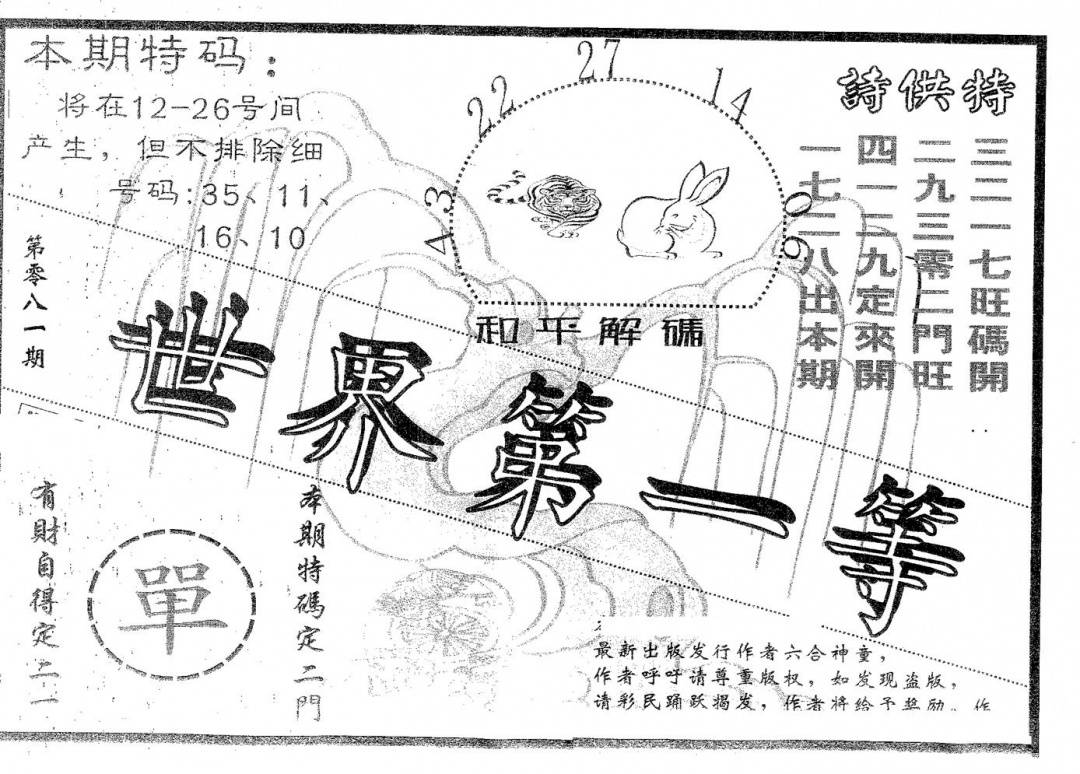 本期特码：
将在12-26号间
产生，但不排除细
号码:35、11、
16、10
第零八一期
43
22
27
14
09
和平解码
特供詩
三二一七旺碼開
二九三零二門旺
四一二九定來開
一七二八出本期
世界第一等
有財自得定二一
單
本期特碼定二門
最新出版发行作者六合神童，
作者呼吁请尊重版权，如发现盗版，
请彩民踊跃揭发，作者将给予奖励。作